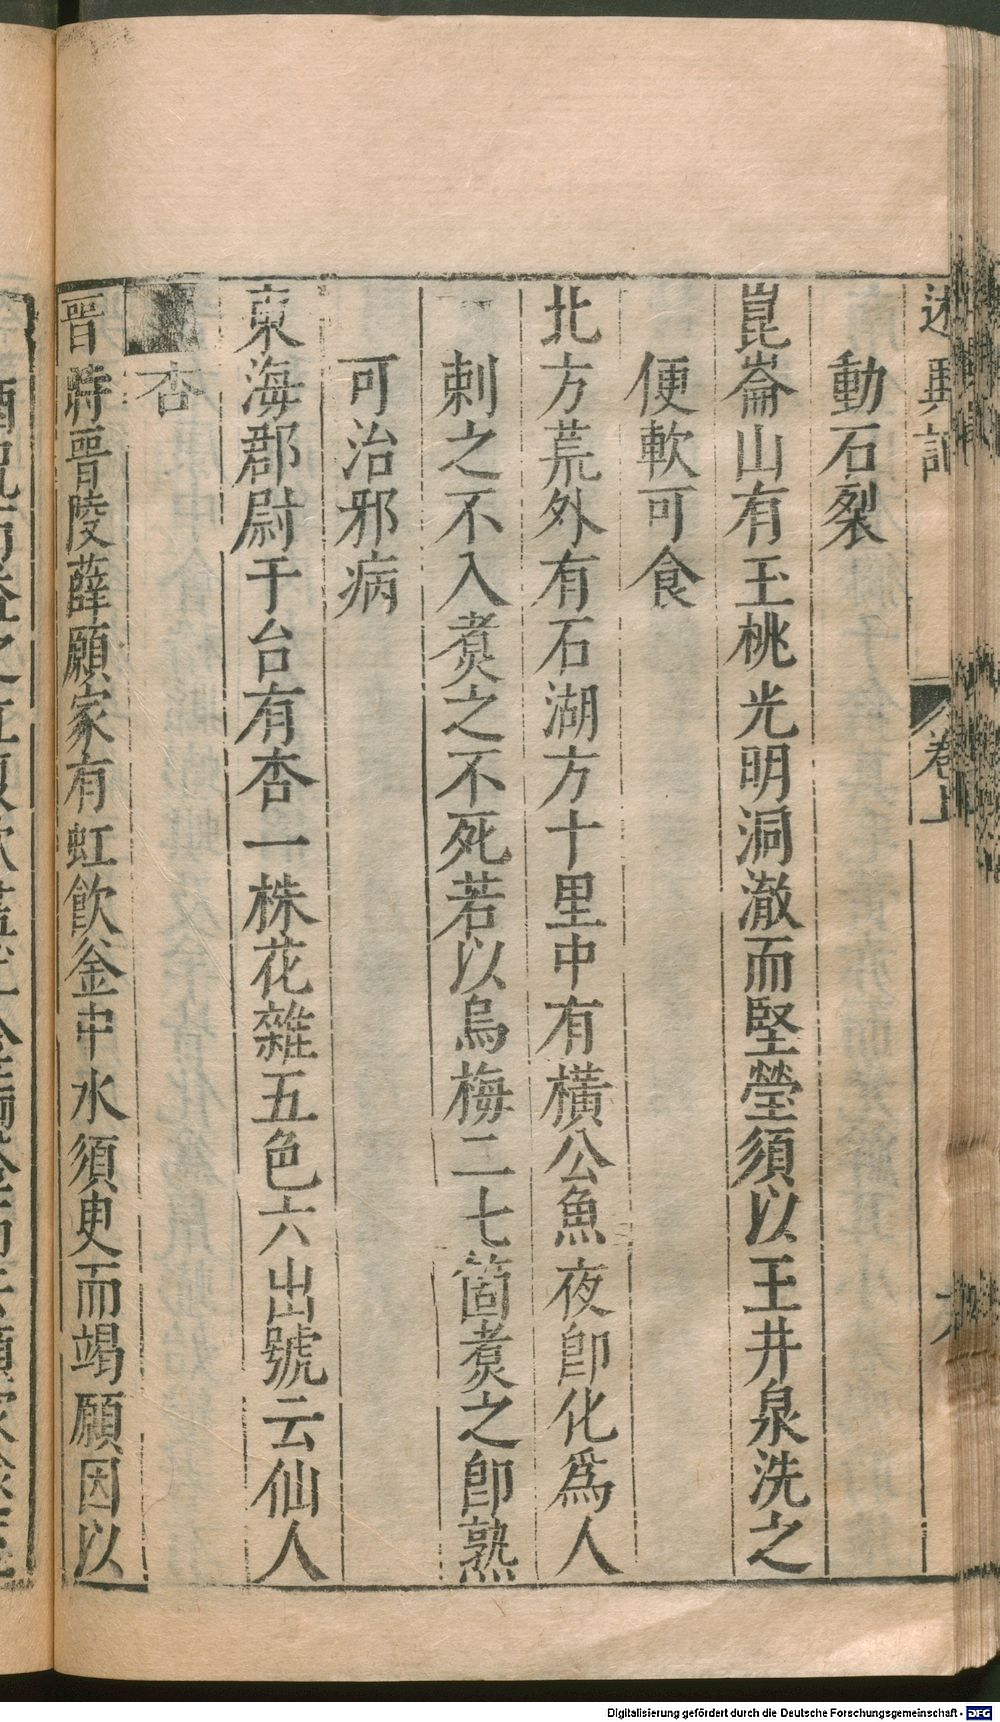 述異記 卷上
動石裂
崑崙山有玉桃光明洞澈而堅瑩須以玉井泉洗之
便軟可食
北方荒外有石湖方十里中有橫公魚夜卽化爲人
刺之不入煑之不死若以烏梅二七箇煑之卽熟
可治邪病
東海郡尉于台有杏一株花雜五色六出號云仙人
杏
晋時晋陵薛願家有虹飲釡中水須臾而竭願因以
Digitalisierung gefördert durch die Deutsche Forschungsgemeinschaft - DFG